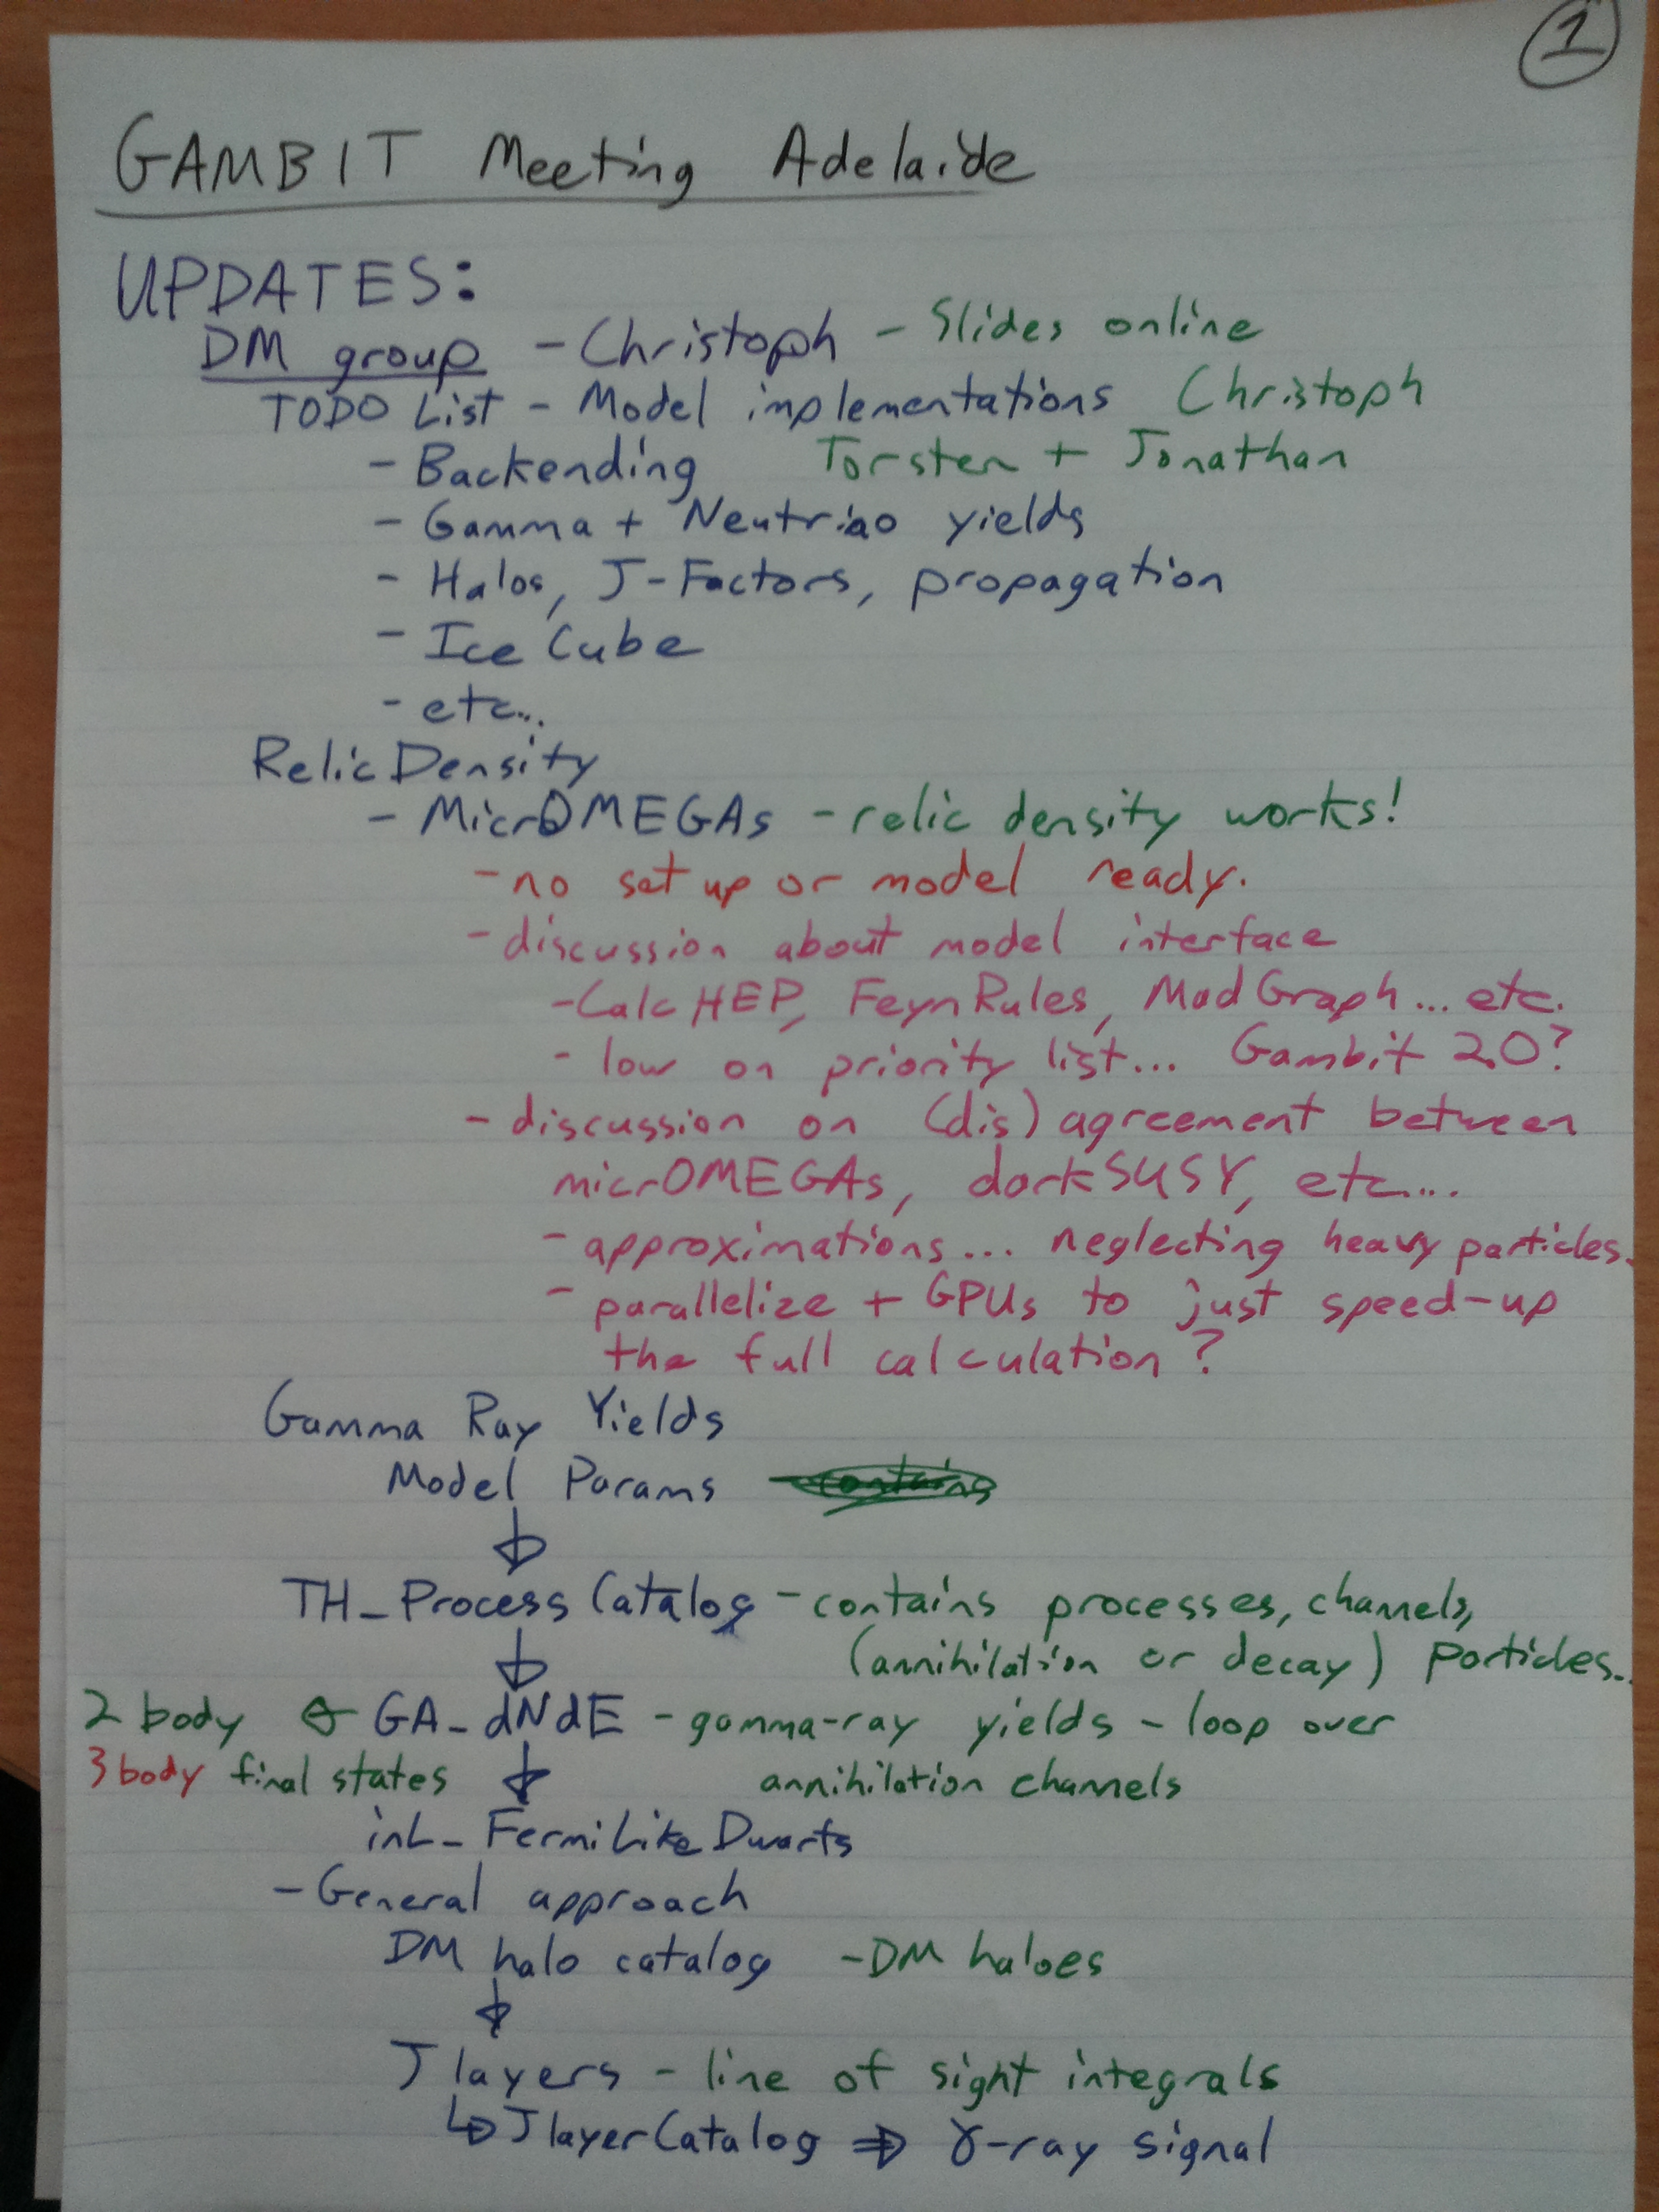 1
GAMBIT Meeting Adelaide
UPDATES:
DM group - Christoph - Slides online
TODO List - Model implementations Christoph
- Backending Torsten + Jonathan
- Gamma + Neutrino yields
- Halos, J-Factors, propagation
- IceCube
- etc...
Relic Density
- MicrOMEGAs - relic density works!
- no set up or model ready.
- discussion about model interface
- CalcHEP, FeynRules, MadGraph... etc.
- low on priority list... Gambit 2.0?
- discussion on (dis)agreement between
micrOMEGAs, darkSUSY, etc...
- approximations... neglecting heavy particles.
- parallelize + GPUs to just speed-up
the full calculation?
Gamma Ray Yields
Model Params
↓
TH_ProcessCatalog - contains processes, channels,
↓ (annihilation or decay) particles..
2 body ← GA_dNdE - gamma-ray yields - loop over
3 body final states ↓ annihilation channels
lnL_FermiLikeDwarfs
- General approach
DM halo catalog - DM haloes
↓
J layers - line of sight integrals
↳ JlayerCatalog ⇒ γ-ray signal